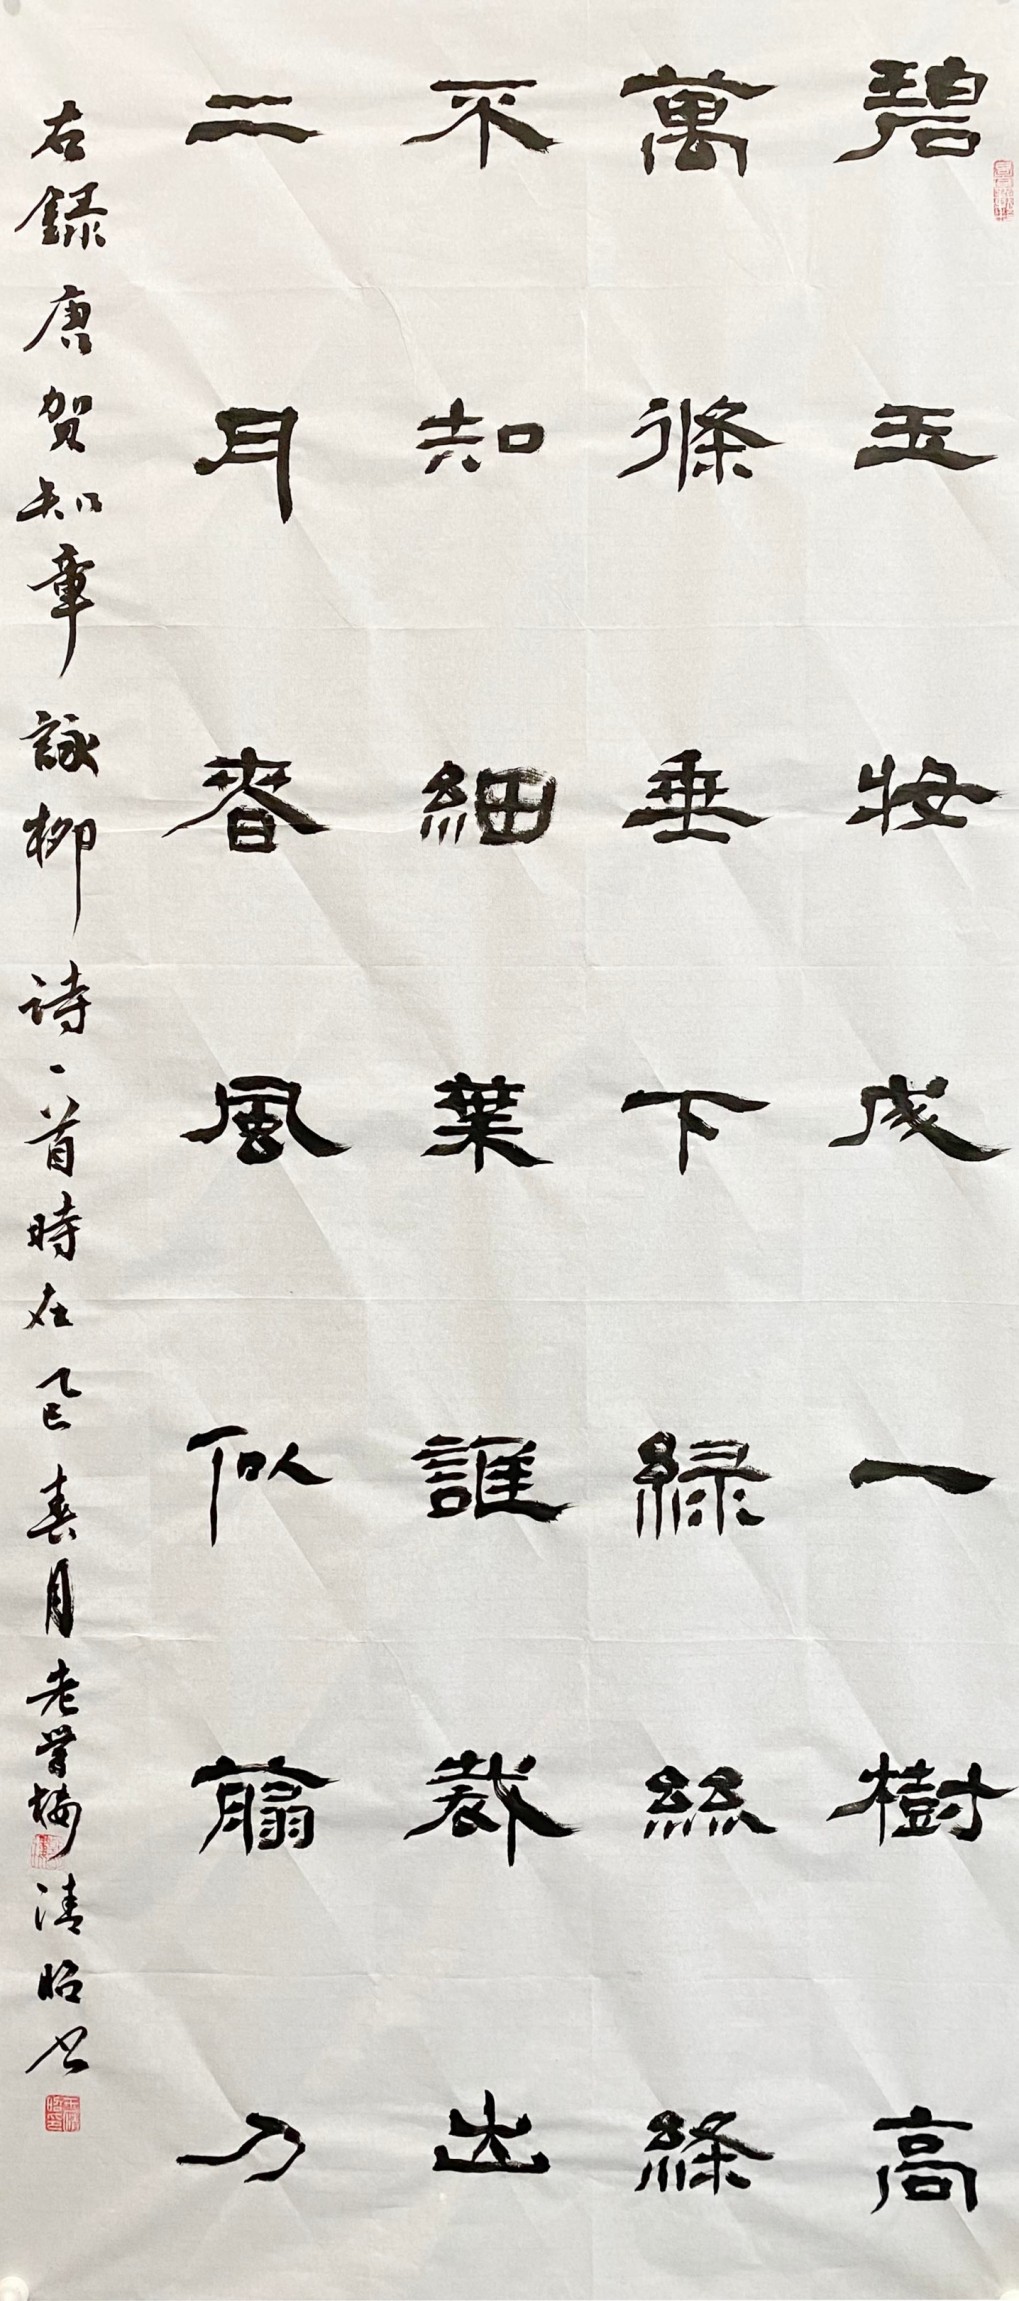 碧玉妝成一樹高
萬條垂下緑絲絛
不知細葉誰裁出
二月春風似翦刀
右録唐贺知章詠柳诗一首時在乙巳春月老梅清昭书